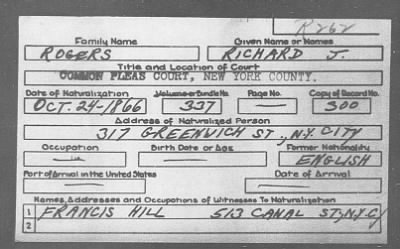 R262
Family Name Given Name or Names
ROGERS RICHARD J.
Title and Location of Court
COMMON PLEAS COURT, NEW YORK COUNTY.
Date of Naturalization Volume or Bundle No. Page No. Copy of Record No.
OCT. 24-1866 337 — 300
Address of Naturalized Person
317 GREENWICH ST., N.Y. CITY
Occupation Birth Date or Age Former Nationality
— — ENGLISH
Port of Arrival in the United States Date of Arrival
— —
Names, Addresses and Occupations of Witnesses To Naturalization
1 FRANCIS HILL 513 CANAL ST., N.Y.C.
2